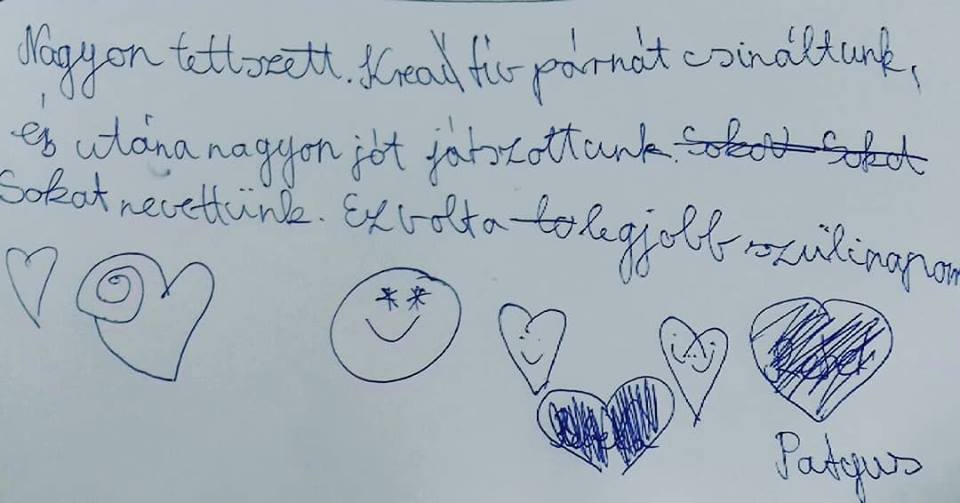 Nagyon tettszett. Kreatív párnát csináltunk,
és utána nagyon jót játszottunk. Sokat Sokat
Sokat nevettünk. Ez volt a legjobb szülinapom
Patyus